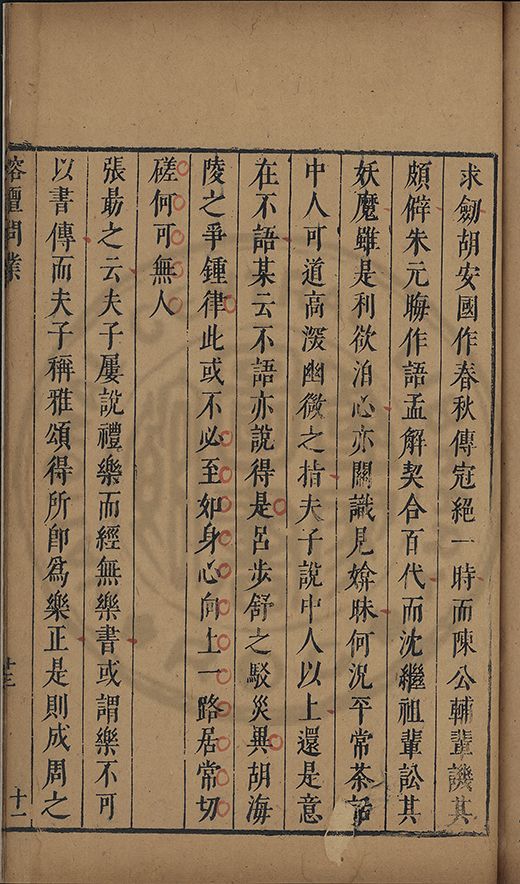 求劔胡安國作春秋傳冠絕一時而陳公輔輩譏其
頗僻朱元晦作語孟解契合百代而沈繼祖輩訟其
妖魔雖是利欲汩心亦關識見媕昧何況平常茶話
中人可道高深幽微之指夫子說中人以上還是意
在不語某云不語亦說得是呂步舒之駁災異胡海
陵之爭鍾律此或不必至如身心向上一路居常切
磋何可無人
張勗之云夫子屢說禮樂而經無樂書或謂樂不可
以書傳而夫子稱雅頌得所卽為樂正是則成周之
榕壇問業
十一